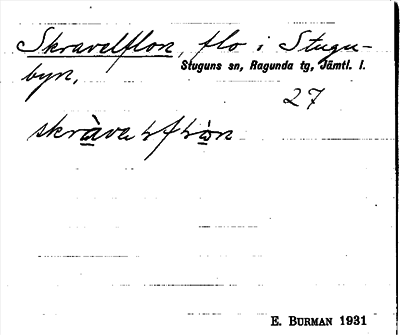 Skravelflon, flo i Stugu-
Stuguns sn, Ragunda tg, Jämtl. l.
byn.
27
E. BURMAN 1931